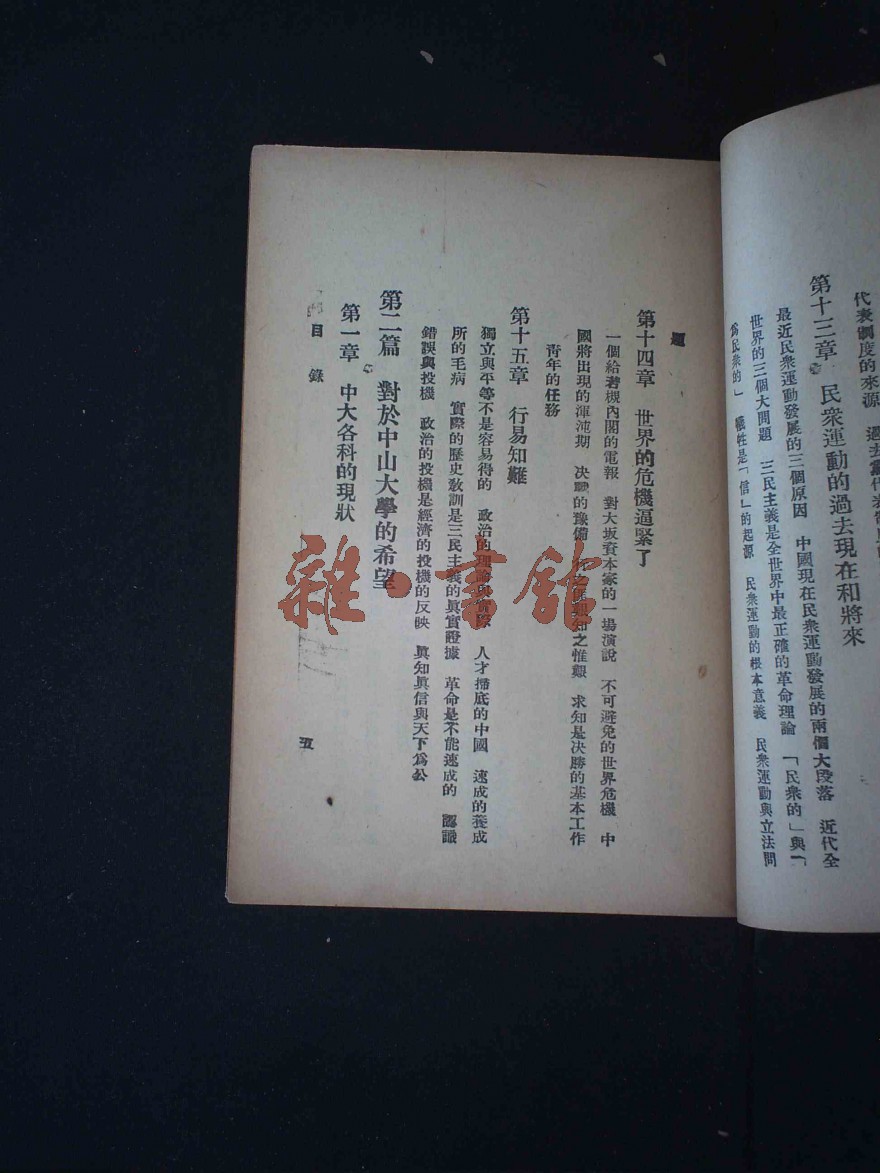 代表制度的來源
第十三章　民衆運動的過去現在和將來
最近民衆運動發展的三個原因　中國現在民衆運動發展的兩個大段落　近代全
世界的三個大問題　三民主義是全世界中最正確的革命理論　「民衆的」與「
爲民衆的」　犧牲是「信」的起源　民衆運動的根本意義　民衆運動與立法問
題
第十四章　世界的危機逼緊了
一個給若槻內閣的電報　對大坂資本家的一場演說　不可避免的世界危機　中
國將出現的渾沌期　決戰的豫備　行之匪艱知之惟艱　求知是決勝的基本工作
靑年的任務
第十五章　行易知難
獨立與平等不是容易得的　政治的理論與實際　人才掃底的中國　速成的養成
所的毛病　實際的歷史敎訓是三民主義的眞實證據　革命是不能速成的　認識
錯誤與投機　政治的投機是經濟的投機的反映　眞知眞信與天下爲公
第二篇　對於中山大學的希望
第一章　中大各科的現狀
目錄
五
雜·書館